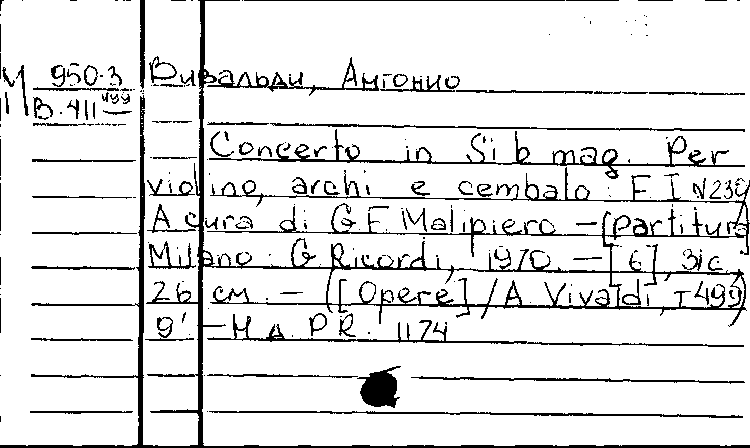 М 950.3 Вивальди, Антонио
В.411 499
Concerto in Si b mag. Per
violino, archi e cembalo: F I N 230/
A cura di G F Malipiero —[Partitura]
Milano: G Ricordi, 1970. —[6], 31 с.;
26 см. — ([Opere] / A Vivaldi, т 499)
9' — Н. д. P.R. 1174